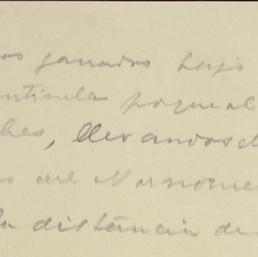 os ganados bajo
ntinelas porque al
hes, llevandosel
s del N
la distancia de